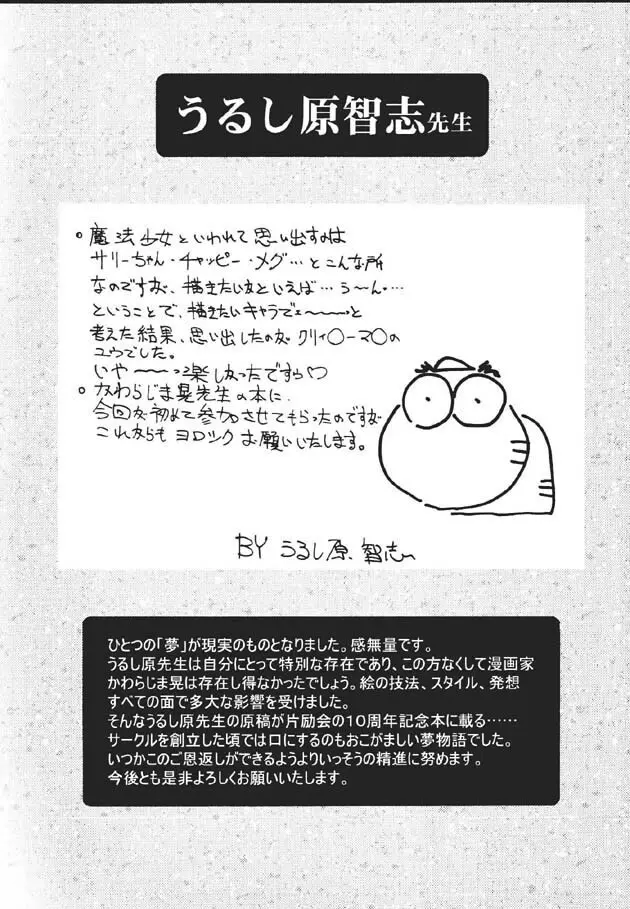 うるし原智志先生
○魔法少女といわれて思い出すのは
サリーちゃん・チャッピー・メグ…とこんな所
なのですが、描きたい女といえば…う～ん…
ということで、描きたいキャラでェ～～～っと
考えた結果、思い出したのがクリィ○ーマ○の
ユウでした。
いや～～～っ楽しかったですゥ♡
○かわらじま晃先生の本に、
今回が初めて参加させてもらったのですが
これからもヨロシクお願いいたします。
BY うるし原 智志
ひとつの「夢」が現実のものとなりました。感無量です。
うるし原先生は自分にとって特別な存在であり、この方なくして漫画家
かわらじま晃は存在し得なかったでしょう。絵の技法、スタイル、発想
すべての面で多大な影響を受けました。
そんなうるし原先生の原稿が片励会の10周年記念本に載る……
サークルを創立した頃では口にするのもおこがましい夢物語でした。
いつかこのご恩返しができるようよりいっそうの精進に努めます。
今後とも是非よろしくお願いいたします。